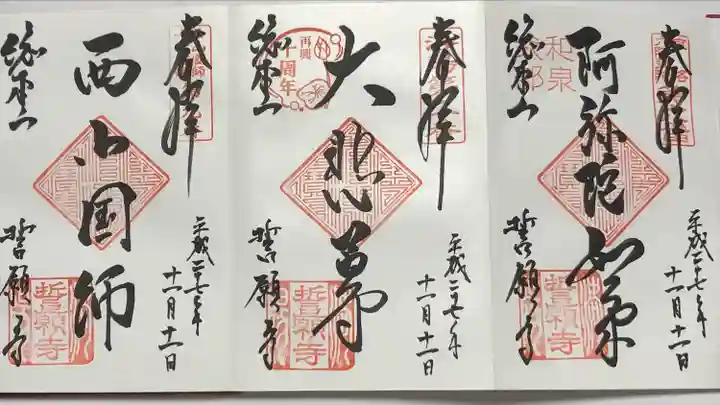 奉拝
和泉
式部
阿弥陀如来
総本山
誓願寺
平成二十七年
十一月十一日
誓願寺
奉拝
再興
十周年
大悲尊
総本山
誓願寺
平成二十七年
十一月十一日
誓願寺
奉拝
西山国師
総本山
誓願寺
平成二十七年
十一月十一日
誓願寺